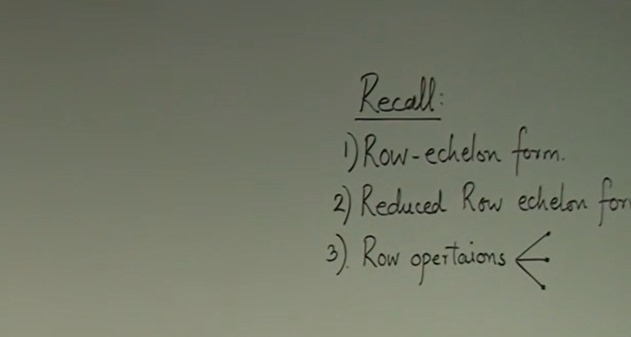 Recall:
1) Row-echelon form.
2) Reduced Row echelon for
3). Row opertaions